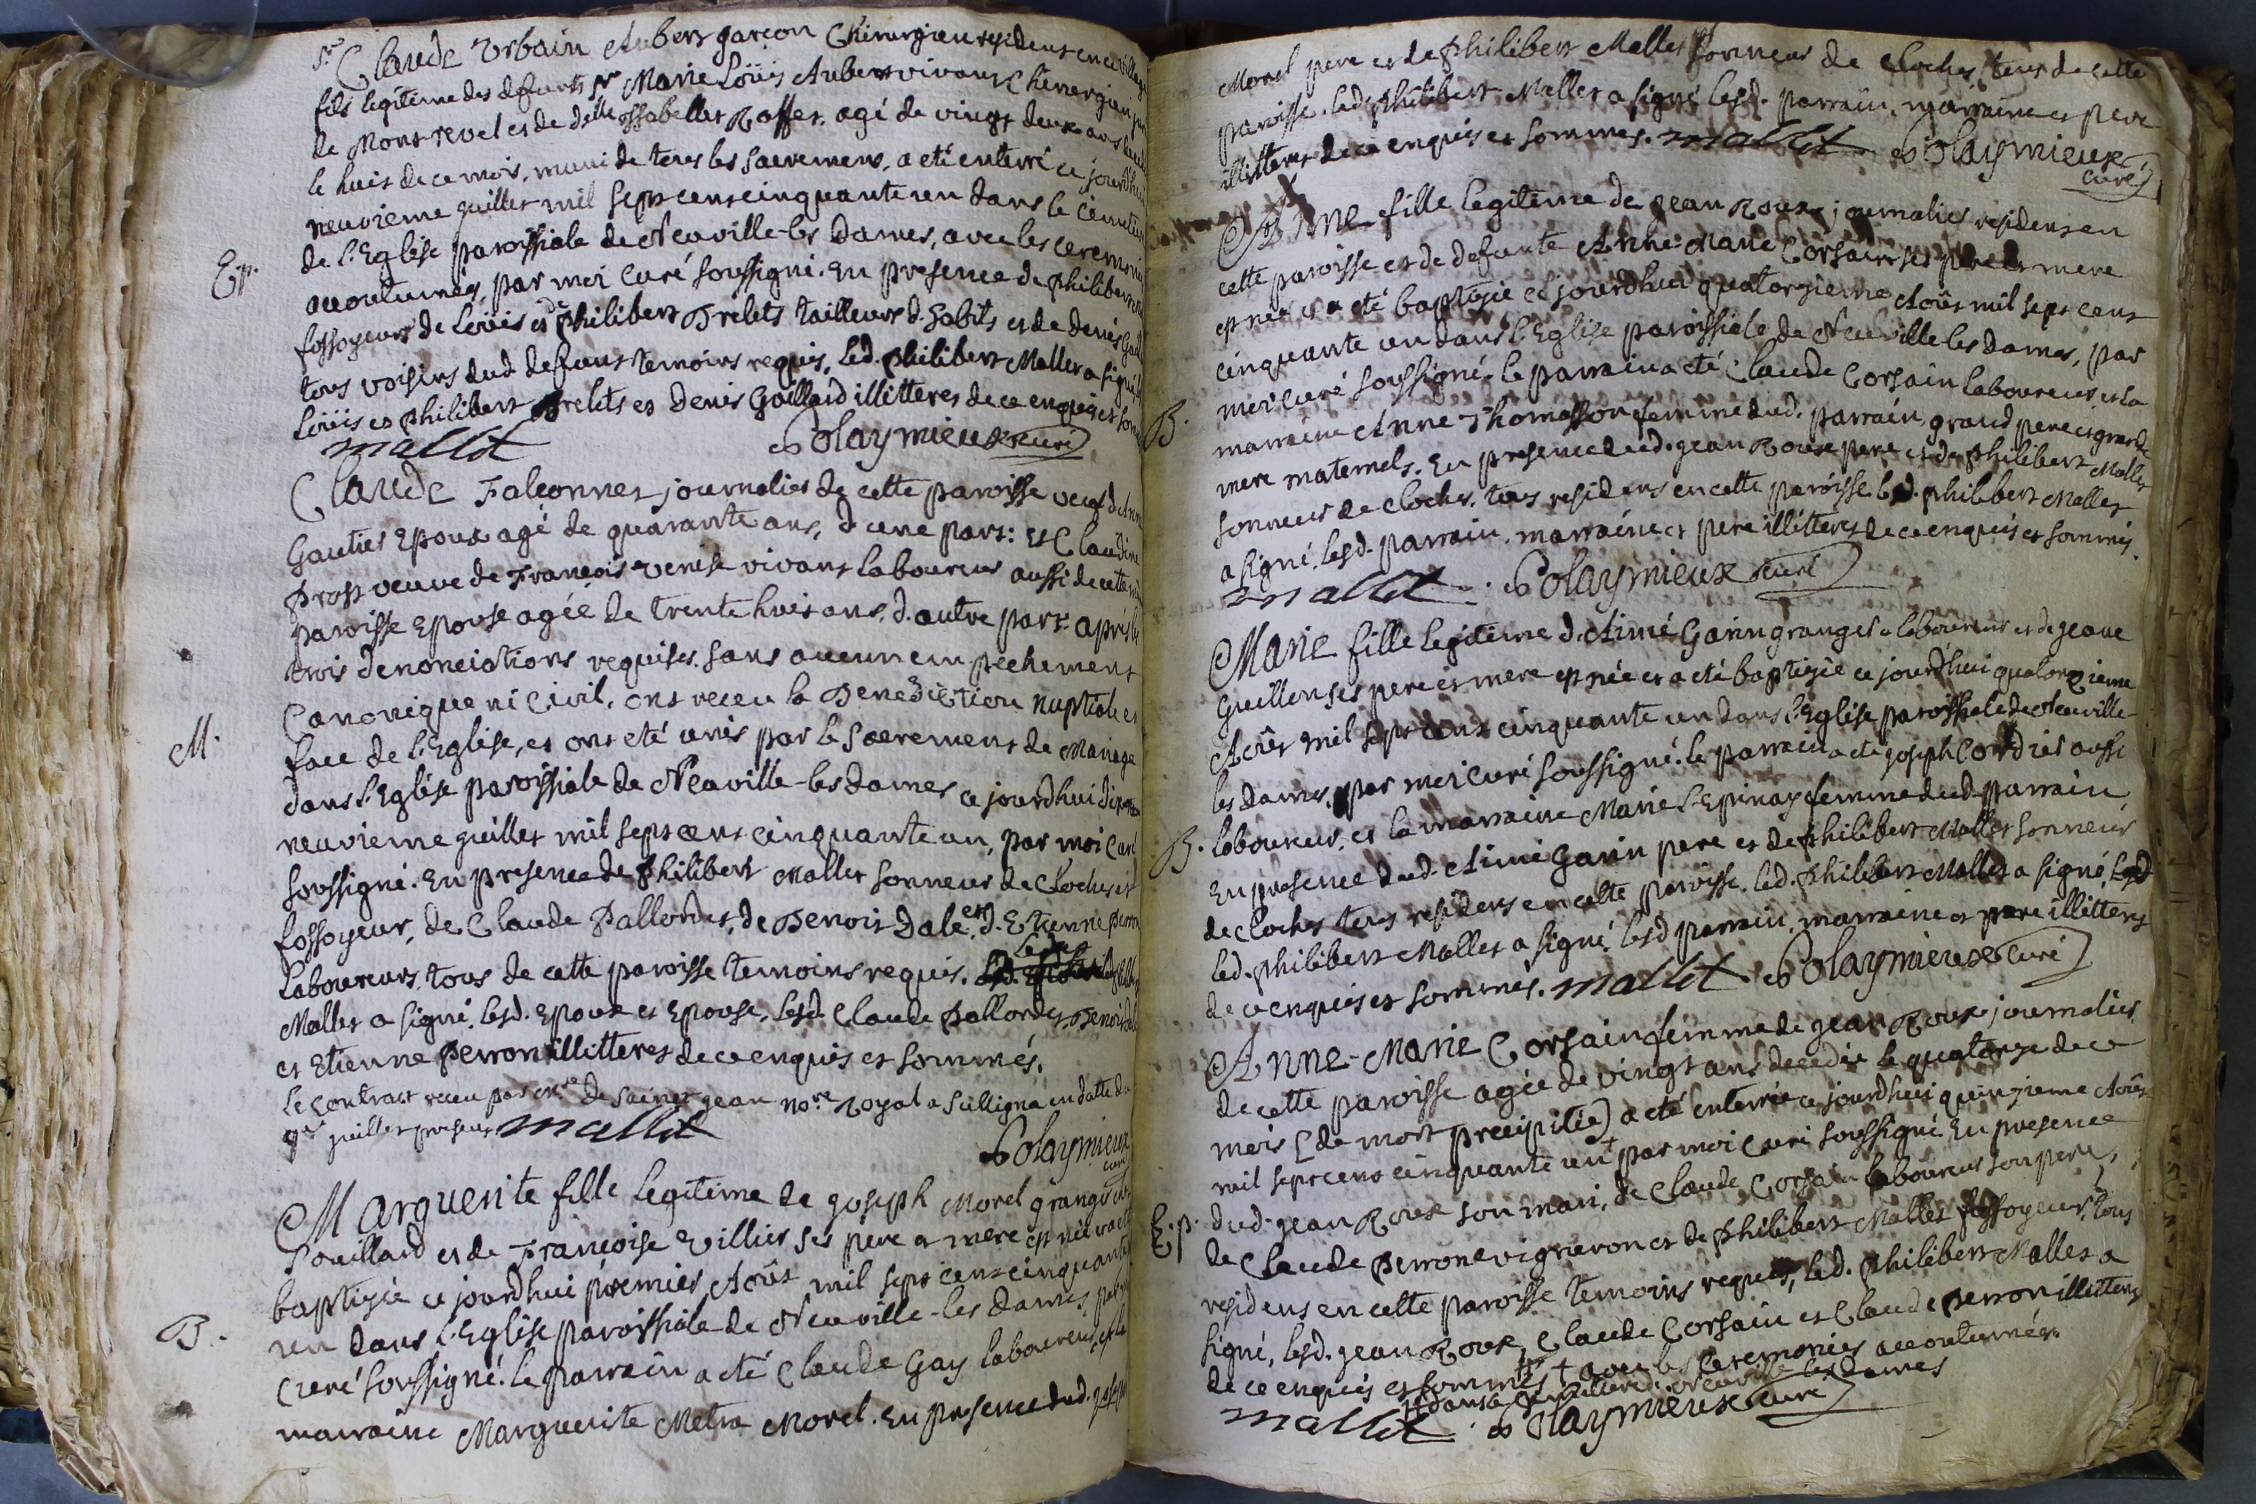 Sr Claude Urbain Aubert garçon Chirurgien resident en ce village
fils legitime des defunts Sr Marie Loüis Aubert vivant Chirurgien
de Montrevel et de delle Issabelle Roffet, agé de vingt deux ans
le huit de ce mois, muni de tous les sacremens, a eté enterré ce jourdhui
neuvieme juillet mil sept cent cinquante un dans le cemetiere
de l'Eglise paroissiale de Neuville-les Dames, avec les ceremonies
Ep.
accoutumées, par moi curé soussigné. En presence de philibert
fossoyeur de Loüis et philibert Brelits tailleurs d.habits et de denis
tous voisins dud. defunt temoins requis, led. philibert Mallet a signé
Loüis et philibert Brelits et Denis Gaillard illitteres de ce enquis et
mallet Polaymieux curé
Claude Falconnet journalier de cette paroisse veuf d.Anne
Gautier Epoux agé de quarante ans, d'une part: et Claudine
Prost veuve de François Venise vivant laboureur aussi de cette
paroisse Epouse agée de trente huit ans, d.autre part. après les
trois denonciations requises sans aucun empechement
Canonique ni Civil, ont receu la Benediction nuptiale en
M.
face de l'Eglise, et ont eté unis par le sacrement de Mariage
dans l'Eglise paroissiale de Neuville-les Dames ce jourdhui dix
neuvieme juillet mil sept cent cinquante un, par moi Curé
soussigné. En presence de philibert Mallet sonneur de cloches et
fossoyeur, de Claude Pallordet, de Benoit Dale, et d.Etienne Perron
Laboureurs, tous de cette paroisse temoins requis. Led.
Mallet a signé, lesd. Epoux et Epouse, lesd. Claude Pallordet, Benoit
et Etienne Perron illitteres de ce enquis et sommés.
Le contract receu par me de Saint jean nore Royal a Sulligna en datte du
juillet present mallet
Polaymieux curé
Marguerite fille legitime de joseph Morel granger
Pouillard et de Françoise Villier ses pere et mere est née et a eté
baptizée ce jourdhui premier Août mil sept cent cinquante
B.
un dans l'Eglise paroissiale de Neuville-les Dames, par
Curé soussigné. le parrain a eté Claude Gay laboureur, et la
marraine Marguerite Metra Morel. En presence dud. joseph
Morel pere et de philibert Mallet sonneur de cloches, tous de cette
paroisse. led. philibert Mallet a signé, lesd. parrain, marraine et pere
illitteres de ce enquis et sommés. mallet Polaymieux
curé
Anne fille legitime de jean Roux journalier resident en
cette paroisse et de defunte Anne-Marie Corsain ses pere et mere
est née et a eté baptizée ce jourdhui quatorzieme Août mil sept cent
cinquante un dans l'Eglise paroissiale de Neuville-les Dames, par
moi curé soussigné. le parrain a eté Claude Corsain laboureur et la
B.
marraine Anne Thomasson femme dud. parrain, grand pere et grande
mere maternels. En presence dud. jean Roux pere et de philibert Mallet
sonneur de cloches, tous residens en cette paroisse. led. philibert Mallet
a signé, lesd. parrain, marraine et pere illitteres de ce enquis et sommés.
mallet Polaymieux curé
Marie fille legitime d.Aimé Garin granger et laboureur et de jeane
Guillon ses pere et mere est née et a eté baptizée ce jourdhui quatorzieme
Août mil sept cent cinquante un dans l'Eglise paroissiale de Neuville-
les Dames, par moi curé soussigné. le parrain a eté joseph Cordier aussi
B.
laboureur, et la marraine Marie L.Epinay femme dud. parrain
En presence dud. Aimé Garin pere et de philibert Mallet sonneur
de cloches tous residens en cette paroisse. led. philibert Mallet a signé, lesd
led. philibert Mallet a signé, lesd parrain, marraine et pere illitteres
de ce enquis et sommés. mallet Polaymieux curé
Anne-Marie Corsain femme de jean Roux journalier
de cette paroisse agée de vingt ans decedée le quatorze de ce
mois (de mort precipitée) a eté enterrée ce jourdhui quinzieme Août
mil sept cent cinquante un + par moi Curé soussigné. En presence
E.p.
dud. jean Roux son mari, de Claude Corsain laboureur son pere,
de Claude Perron vigneron et de philibert Mallet fossoyeur, tous
residens en cette paroisse temoins requis, led. philibert Mallet a
signé, lesd. jean Roux, Claude Corsain et Claude Perron illitteres
de ce enquis et sommés + avec les ceremonies accoutumées
dans le cemetiere de Neuville-les Dames
mallet Polaymieux curé